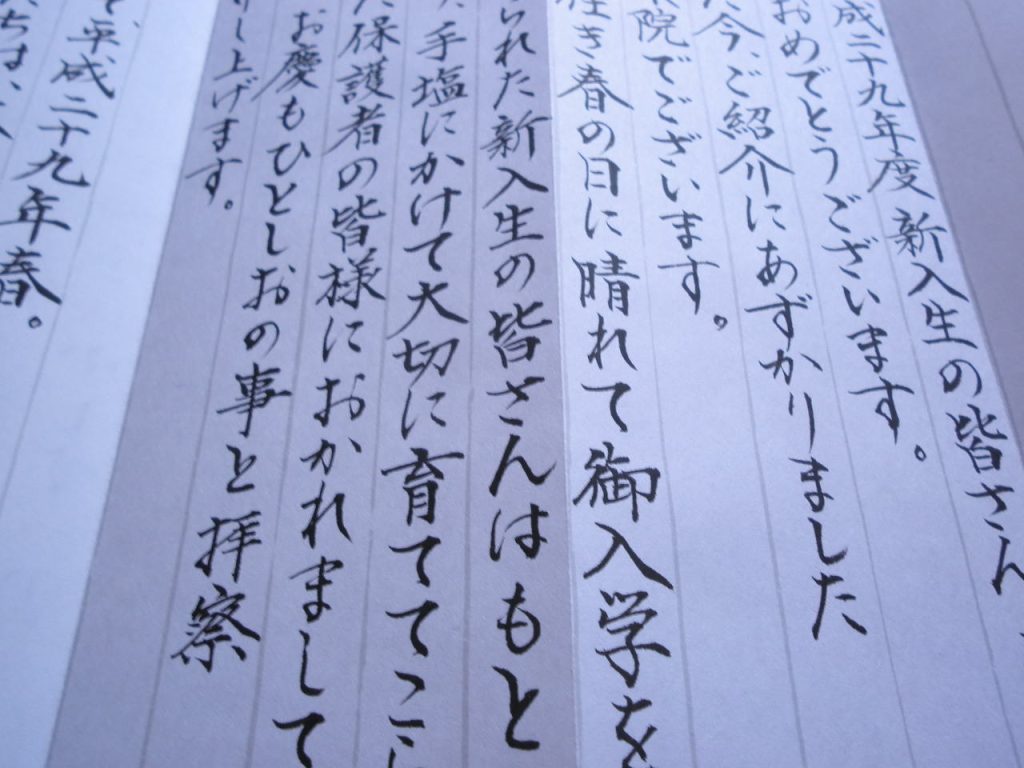 成二十九年度 新入生の皆さん
おめでとうございます。
た今、ご紹介にあずかりました
院でございます。
佳き春の日に晴れて御入学を
られた新入生の皆さんはもと
手塩にかけて大切に育ててこ
た保護者の皆様におかれまして
お慶もひとしおの事と拝察
し上げます。
平成二十九年春。